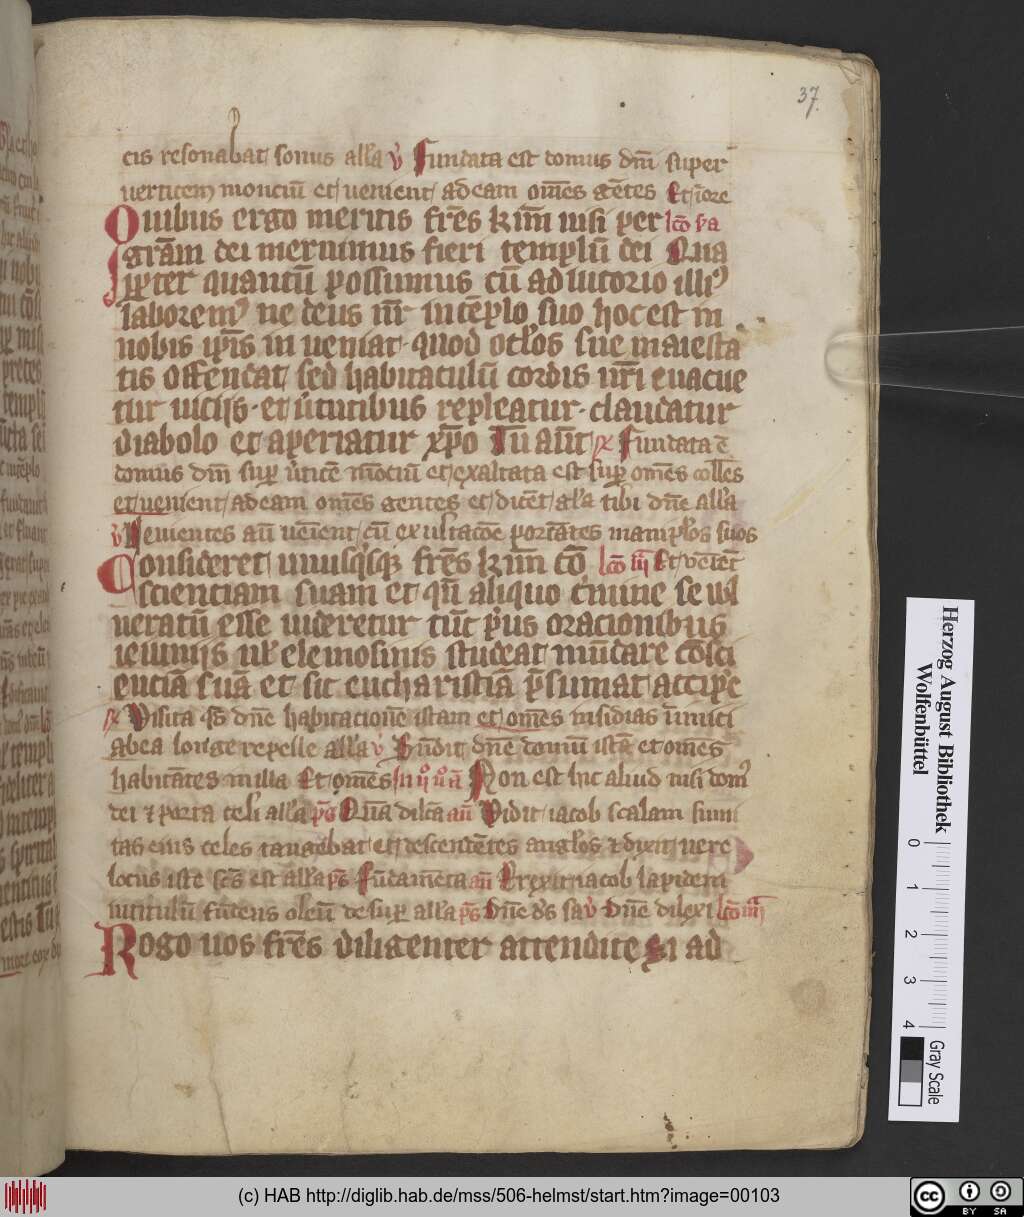 37
cis resonabat sonus all'a v̉ Fundata est domus dn̄i super
verticem monciū et venient ad eam om̄es gētes Et i ore
Quibus ergo meritis fr̄es k̄im̄ nisi per lc̄o s̄a
grām dei meruimus fieri templū dei Qua
ꝓpter quantū possumus cū adiutorio illiꝰ
laboremꝰ ne deus nr̄ in tēplo suo hoc est in
nobis ip̄is inveniat quod oc̄los sue maiesta
tis offendat sed habitaculū cordis nr̄i evacue
tur viciis et v̉tutibus repleatur claudatur
diabolo et aperiatur xp̄o Tū aūt ℞ Fundata ē
domus dn̄i suꝑ v̉ticē mōciū et exaltata est suꝑ om̄es colles
et venient ad eam om̄es gentes et dicēt all'a tibi dn̄e all'a
v̉ Venientes aū veniēt cū exultacōe portātes manip̄los suos
Consideret unusq̉sqꝫ fr̄es k̄im̄ cō lc̄o iii Et veniēt
scienciam suam et qn̄ aliquo c̉mine se vul
neratū esse videretur tūc p̉us oracionibus
ieiuniis v̄l elemosinis studeat mūdare cōsci
enciā suā et sic eucharistiā p̄sumat accipe
℞ Visita qs̄ dn̄e habitacionē istam et om̄es insidias inimici
ab ea longe repelle all'a v̉ Bn̄dic dn̄e domū istā et om̄es
habitātes in illa Et om̄es Non est hic aliud nisi domꝰ
dei ⁊ porta celi all'a ps̄ Qm̄ dilc̄a an̄ Vidit iacob scalam sum
tas eius celos tangebat et descendētes angl̄os ⁊ dixit vere
locus iste sc̄s est all'a ps̄ Fūdamēta an̄ Erexit iacob lapidem
in titulū fundens oleū desuꝑ all'a ps̄ Dn̄e ds̄ sa v̉ Dn̄e dilexi lc̄o iiii
Rogo vos fr̄es diligenter attendite Si ad
Herzog August Bibliothek
Wolfenbüttel
0 1 2 3 4
Gray Scale
(c) HAB http://diglib.hab.de/mss/506-helmst/start.htm?image=00103
cc BY SA